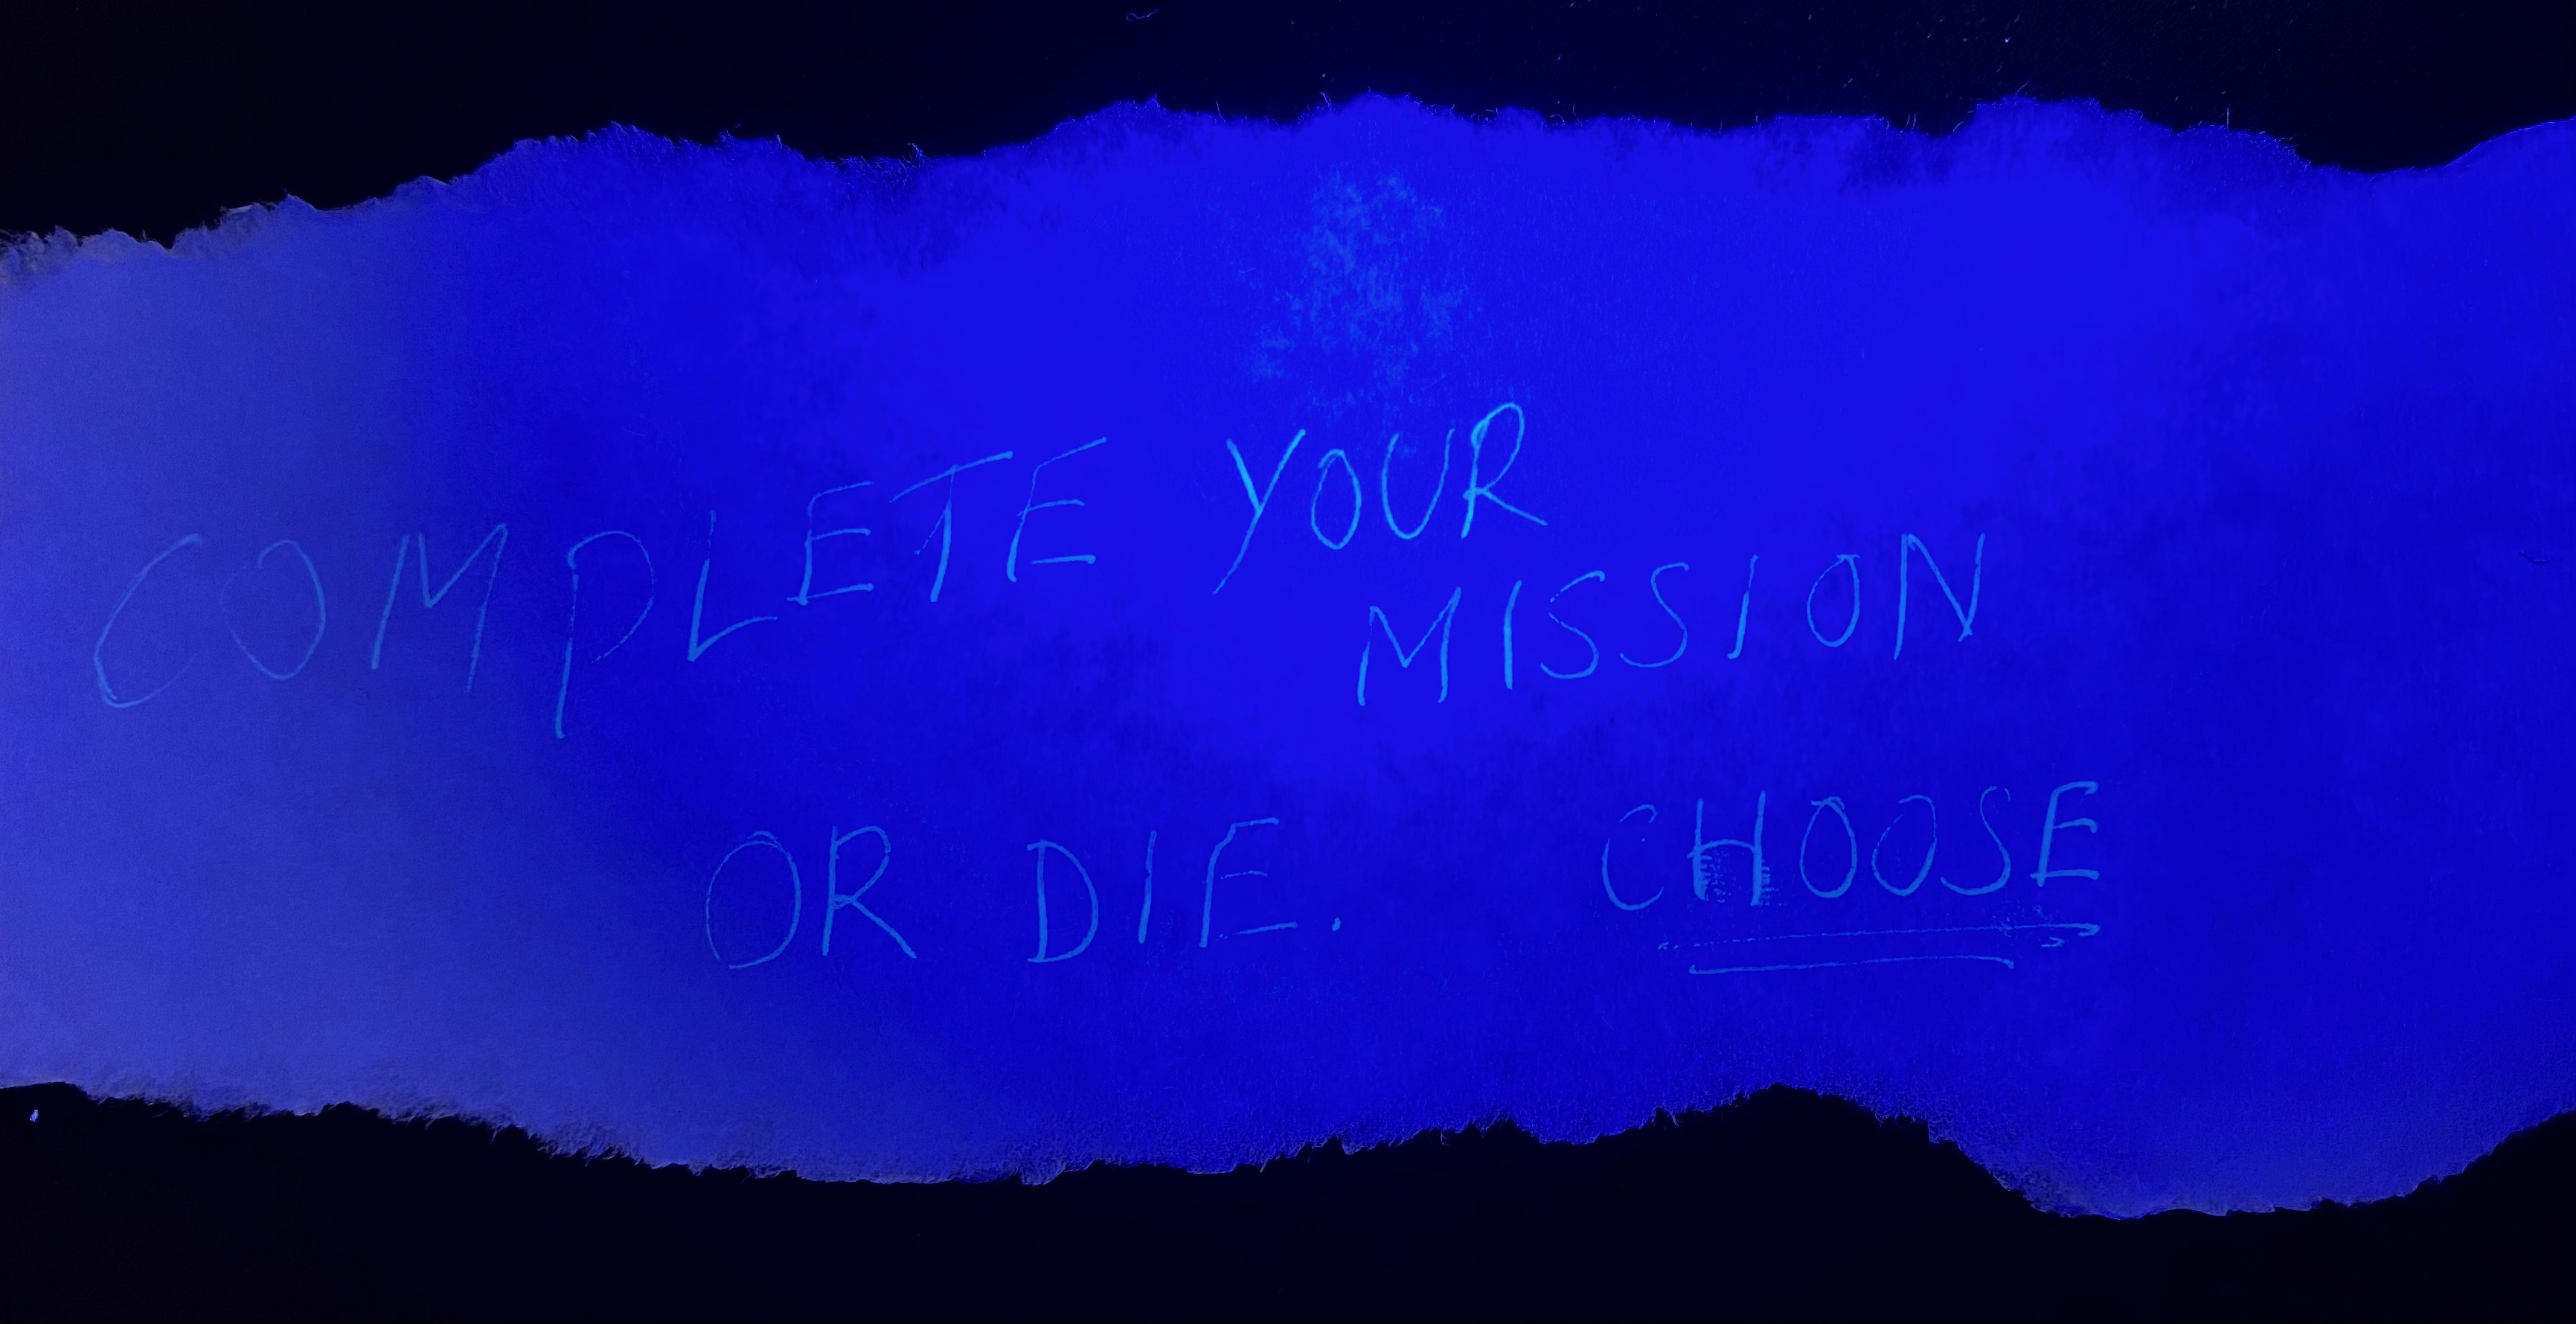 COMPLETE YOUR
MISSION
OR DIE. CHOOSE